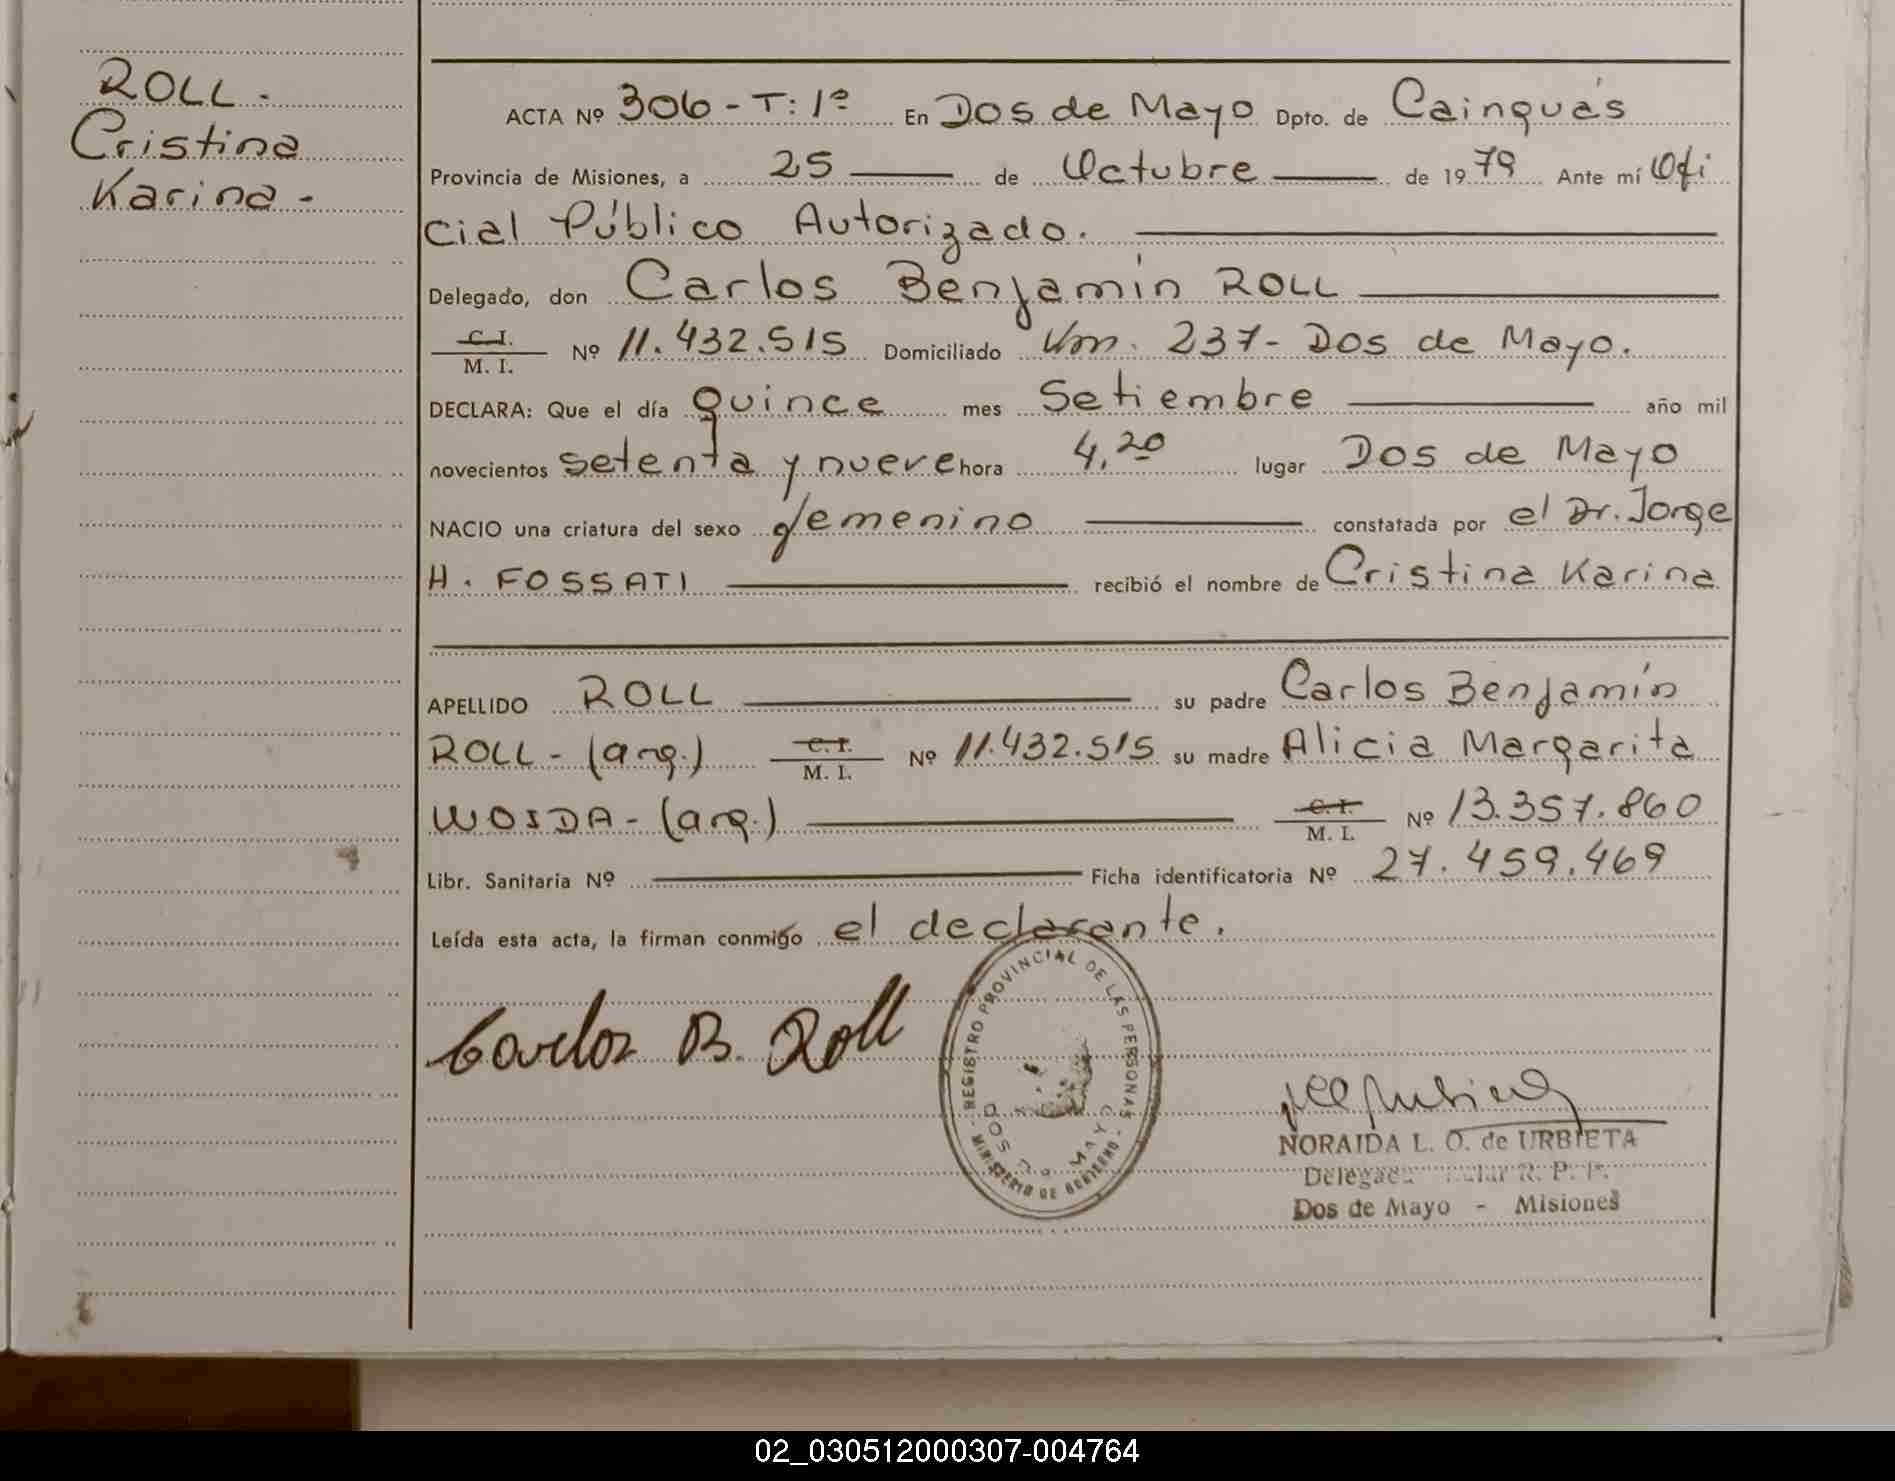 ROLL -
Cristina
Karina -
ACTA Nº 306 - T: 1º En Dos de Mayo Dpto. de Cainguás
Provincia de Misiones, a 25 de Octubre de 1979 Ante mí Ofi
cial Público Autorizado.
Delegado, don Carlos Benjamín ROLL
C. I.
M. I. Nº 11.432.515 Domiciliado Km. 237- Dos de Mayo.
DECLARA: Que el día quince mes Setiembre año mil
novecientos setenta y nueve hora 4,20 lugar Dos de Mayo
NACIO una criatura del sexo femenino constatada por el Dr. Jorge
H. FOSSATI recibió el nombre de Cristina Karina
APELLIDO ROLL su padre Carlos Benjamín
ROLL - (arg.) C. I. M. I. Nº 11.432.515 su madre Alicia Margarita
WOIDA - (arg.) C. I. M. I. Nº 13.357.860
Libr. Sanitaria Nº Ficha identificatoria Nº 27.459.469
Leída esta acta, la firman conmigo el declarante.
Carlos B. Roll
REGISTRO PROVINCIAL DE LAS PERSONAS
DOS DE MAYO
- MINISTERIO DE GOBIERNO -
NORAIDA L. O. de URBIETA
R. P. P.
Dos de Mayo - Misiones
02_030512000307-004764